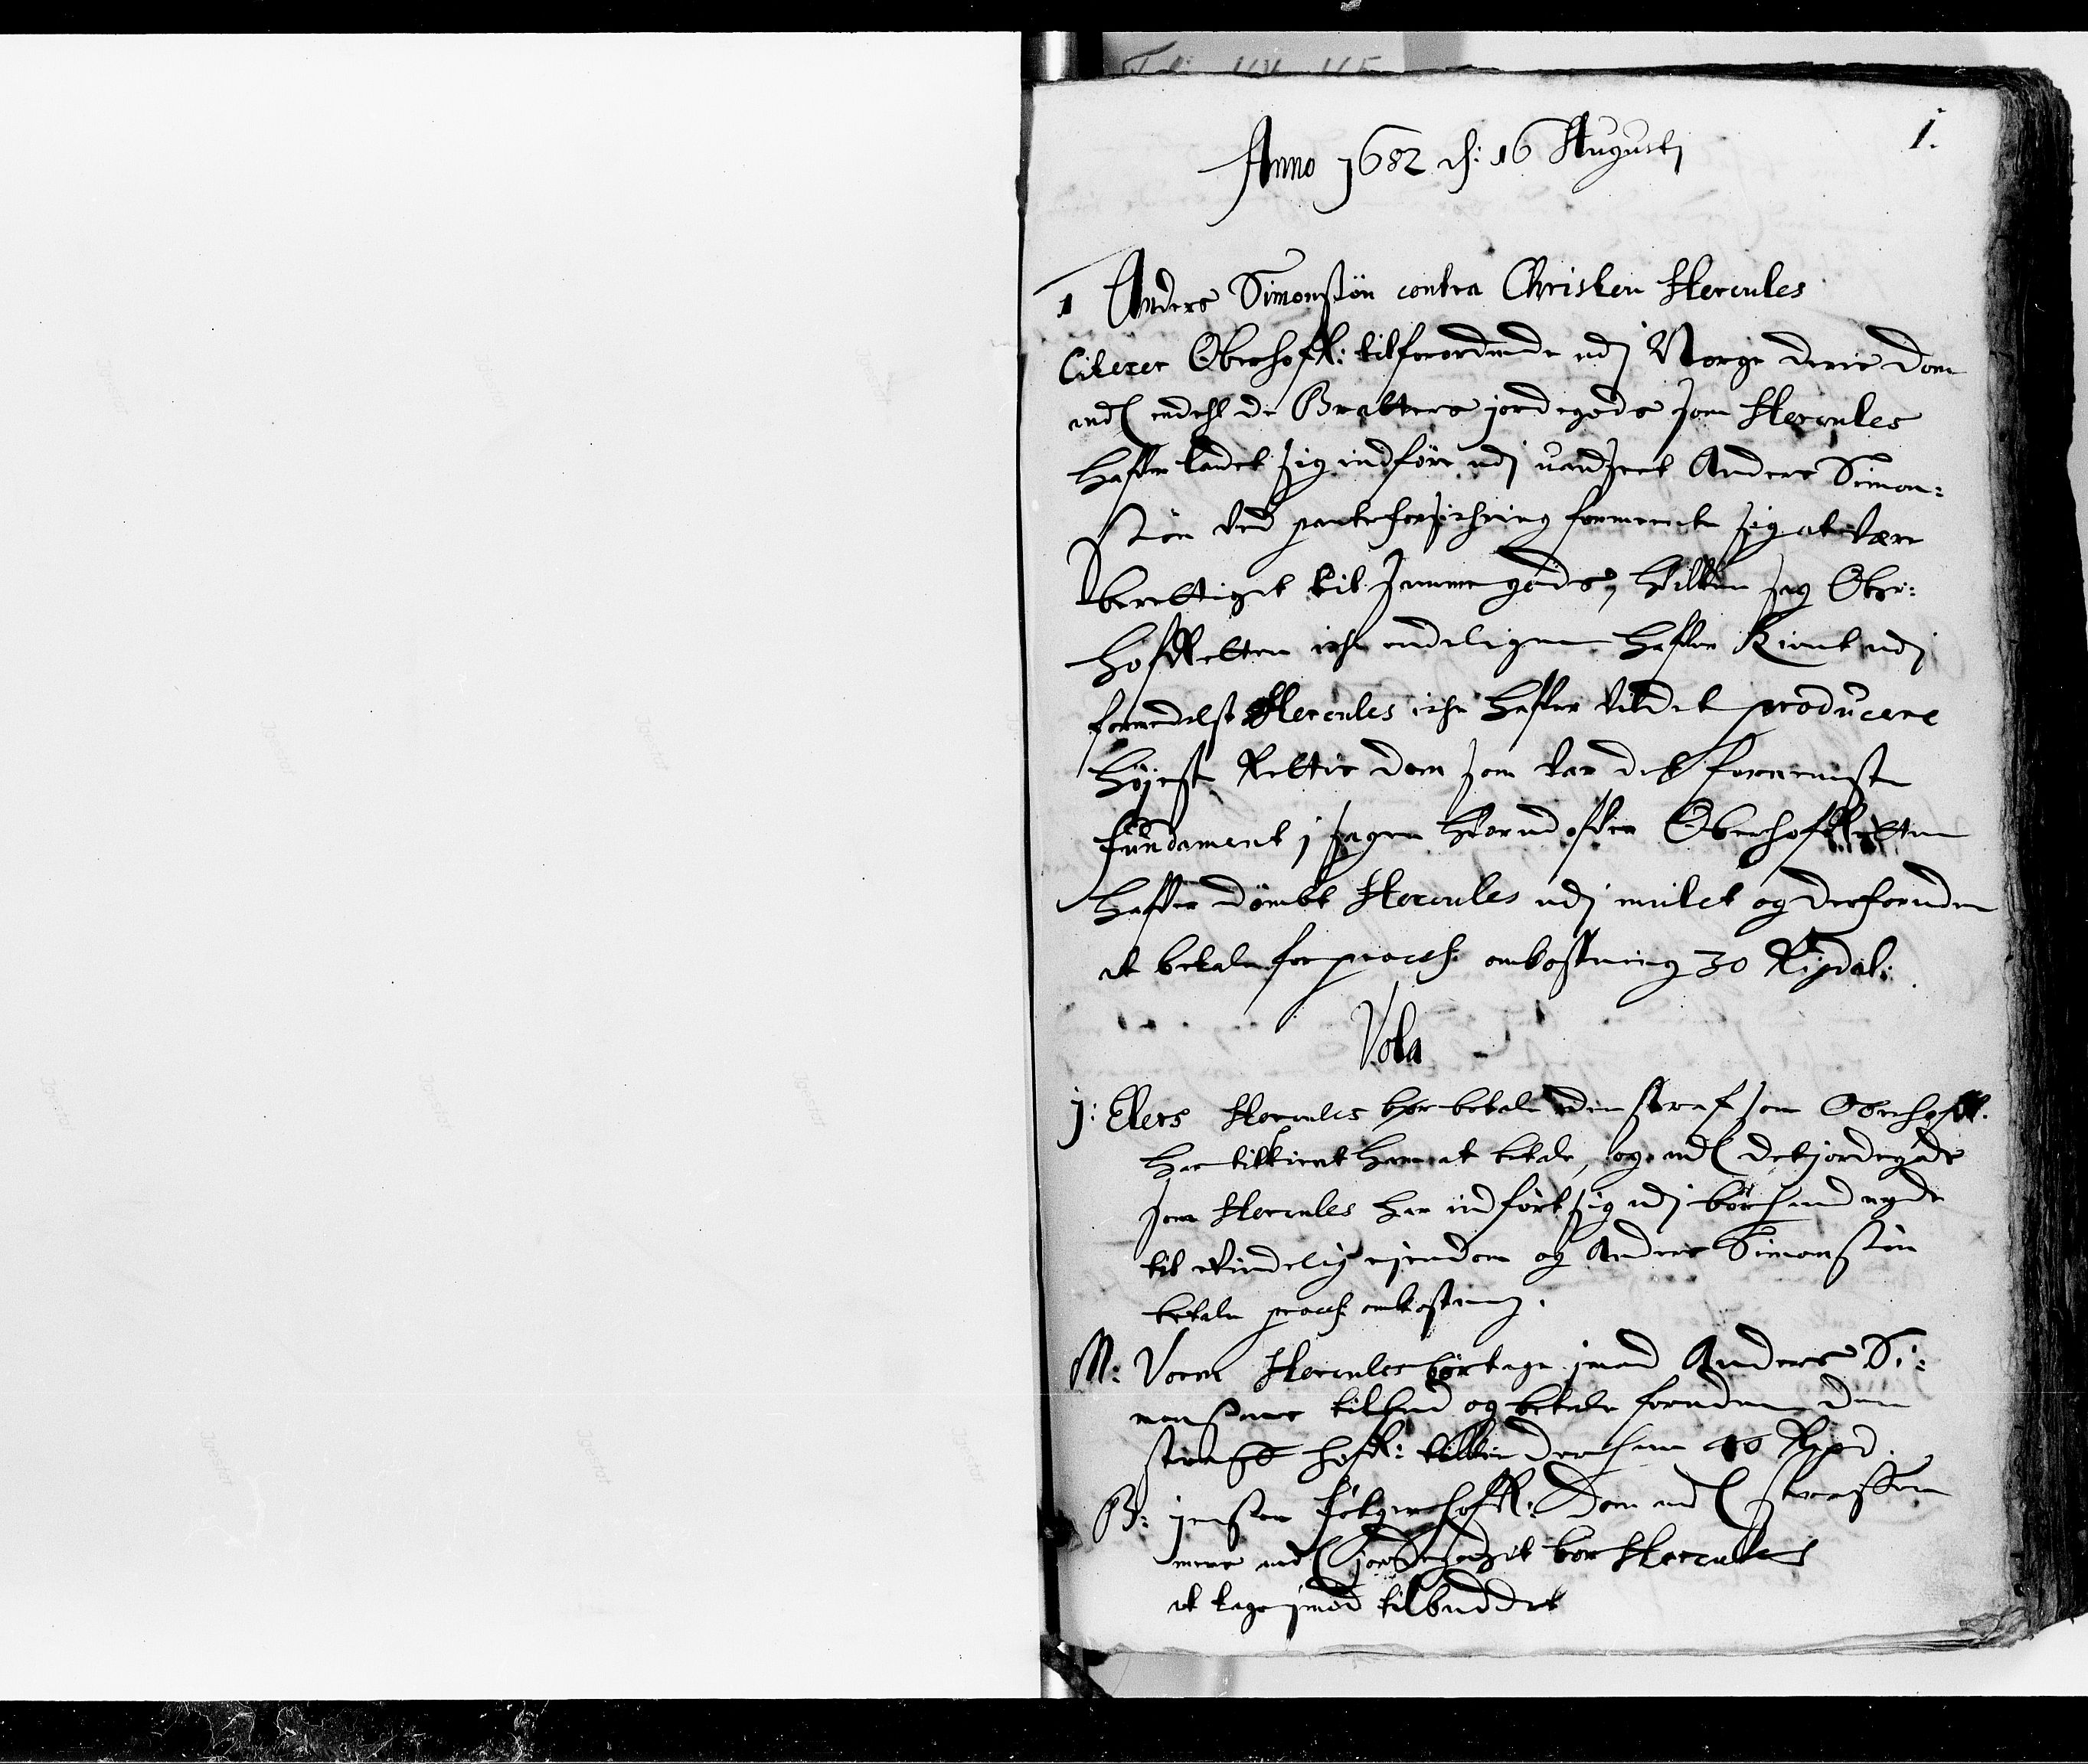 1.
Anno 1682 d: 16 Augusti
1 Anders Simonsøn contra Christen Hercules
Citerer Oberhofr: tilforordnede udj Norge deris dom
ind endehl de Bratters jordegods som Hercules
hafver ladet sig indføre udj uandseet Anders Simon:
søn ved panteforsichring formeente sig at være
berettiget til samme gods, hvilken sag Ober:
hofRetten iche endeligen hafver kient udj
formedelst Hercules iche hafver vildet producere
Højeste Rettis dom som var det fornemste
fundament j sagen hvorudofver OberhofRetten
hafver dømbt Hercules udj mulct og desforuden
at betale for process omkostning 30 Rixdal:
Vota
j: Elers Hercules bør betale den straf som Oberhofr.
har tilkient ham at betale, og ind det jordegods
som Hercules har indført sig udj bør hand nyde
til evindelig ejendom og Anders Simonsøn
betale process omkostning.
M: Vorm Hercules bør tage jmod Anders Si:
monsøns tilbud og betale foruden den
straf hofr: tilkiender ham 40 Rixd.
B: jensøn følger hofr: Dom ind straffen
mens ind jordegodzit bør Hercules
at tage jmod tilbuddet